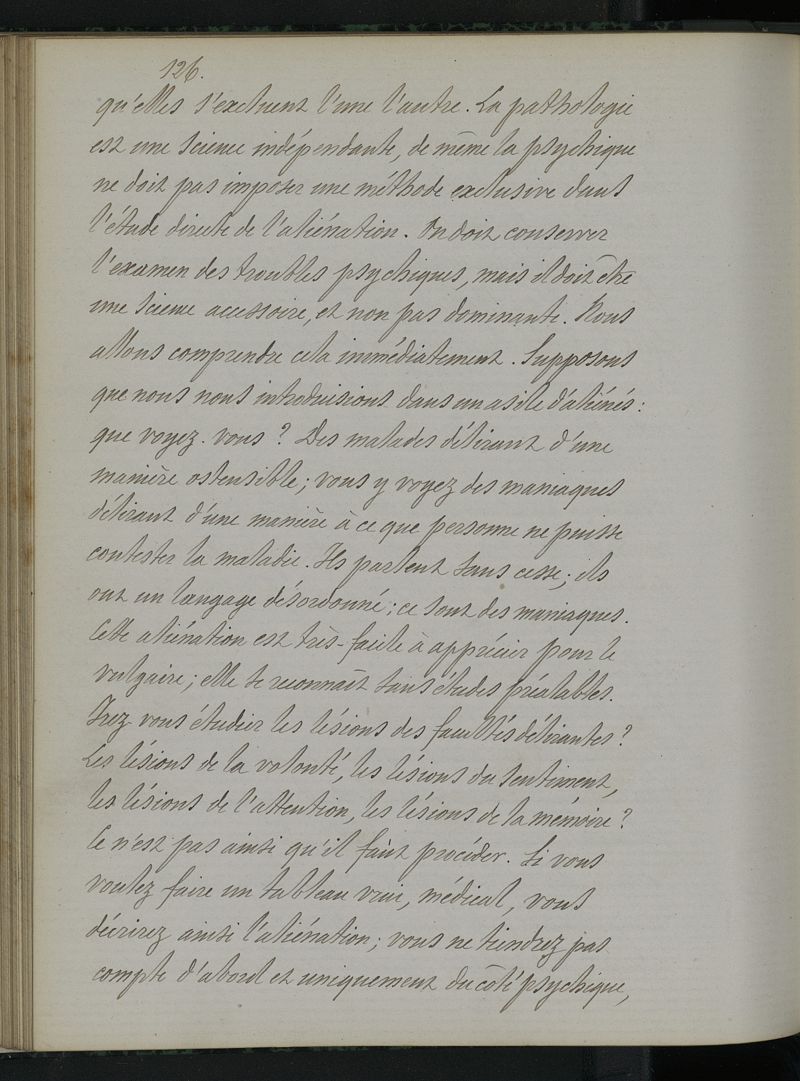 126.
qu'elles s'excluent l'une l'autre. La pathologie
est une science indépendante, de même la psychique
ne doit pas imposer une méthode exclusive dans
l'étude directe de l'aliénation. On doit conserver
l'examen des troubles psychiques, mais il doit être
une science accessoire, et non pas dominante. Nous
allons comprendre cela immédiatement. Supposons
que nous nous introduisions dans un asile d'aliénés :
que voyez-vous ? Des malades délirant d'une
manière ostensible ; vous y voyez des maniaques
délirant d'une manière à ce que personne ne puisse
contester la maladie. Ils parlent sans cesse ; ils
ont un langage désordonné ; ce sont des maniaques.
Cette aliénation est très-facile à apprécier pour le
vulgaire ; elle se reconnaît sans études préalables.
Irez vous étudier les lésions des facultés délirantes ?
Les lésions de la volonté, les lésions du sentiment,
les lésions de l'attention, les lésions de la mémoire ?
Ce n'est pas ainsi qu'il faut procéder. Si vous
voulez faire un tableau vrai, médical, vous
décrirez ainsi l'aliénation ; vous ne tiendrez pas
compte d'abord et uniquement du côté psychique,